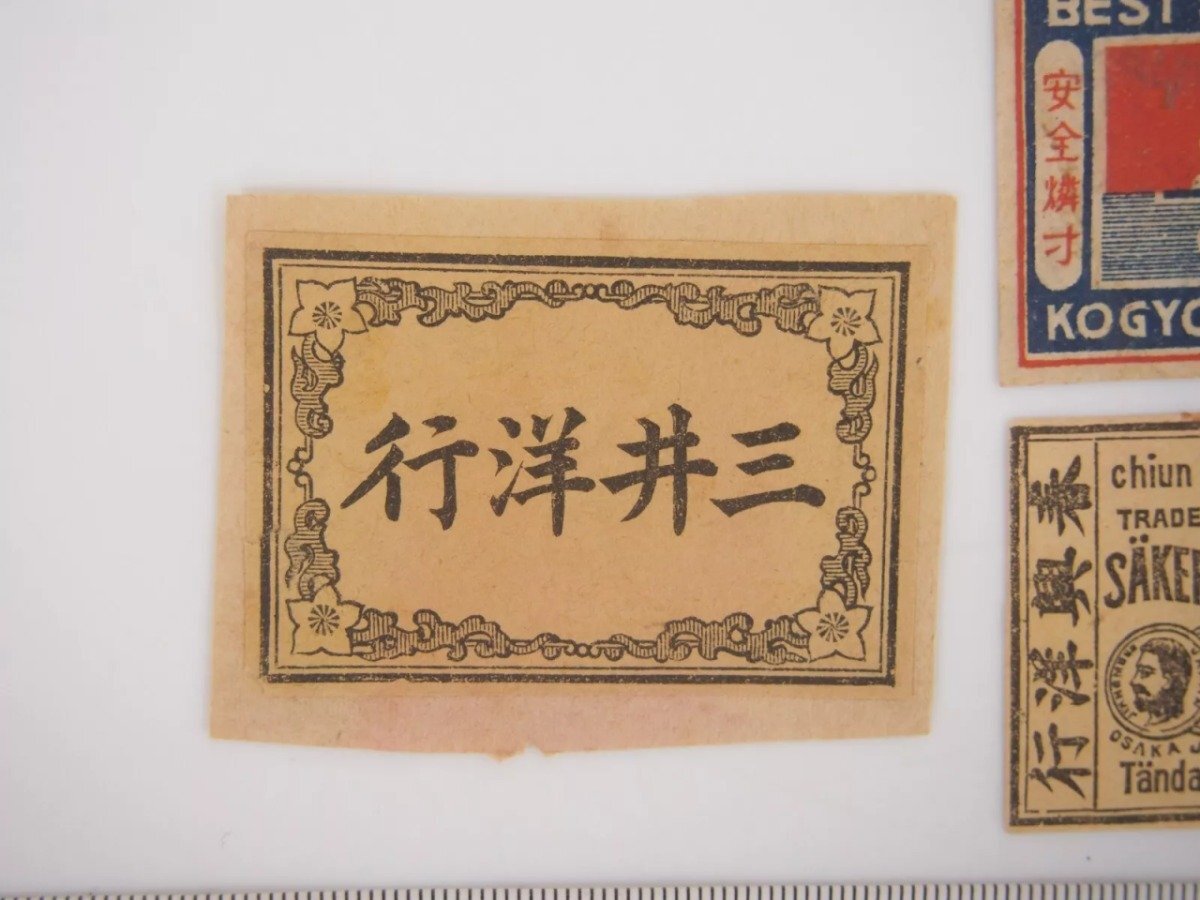 三井洋行
BEST
安全燐寸
KOGYO
春興洋行
chiun
TRADE
SÄKE
OSAKA
Tända